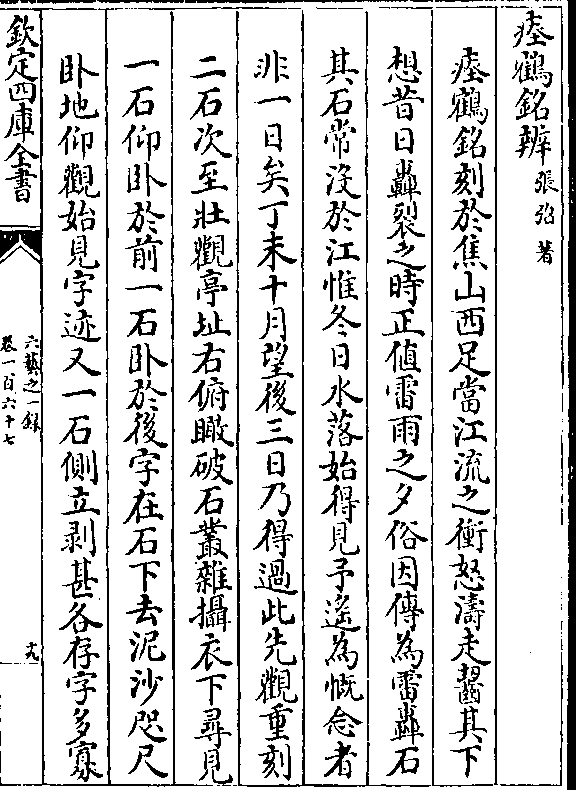 瘞鶴銘辨 張弨著
瘞鶴銘刻於焦山西足當江流之衝怒濤走齧其下
想昔日轟裂之時正值雷雨之夕俗因傳為雷轟石
其石常沒於江惟冬日水落始得見予遙為慨念者
非一日矣丁未十月望後三日乃得過此先觀重刻
二石次至壯觀亭址右俯瞰破石叢雜攝衣下尋見
一石仰卧於前一石卧於後字在石下去泥沙咫尺
卧地仰觀始見字迹又一石側立剥甚各存字多寡
欽定四庫全書
六藝之一録
卷一百六十七
十九